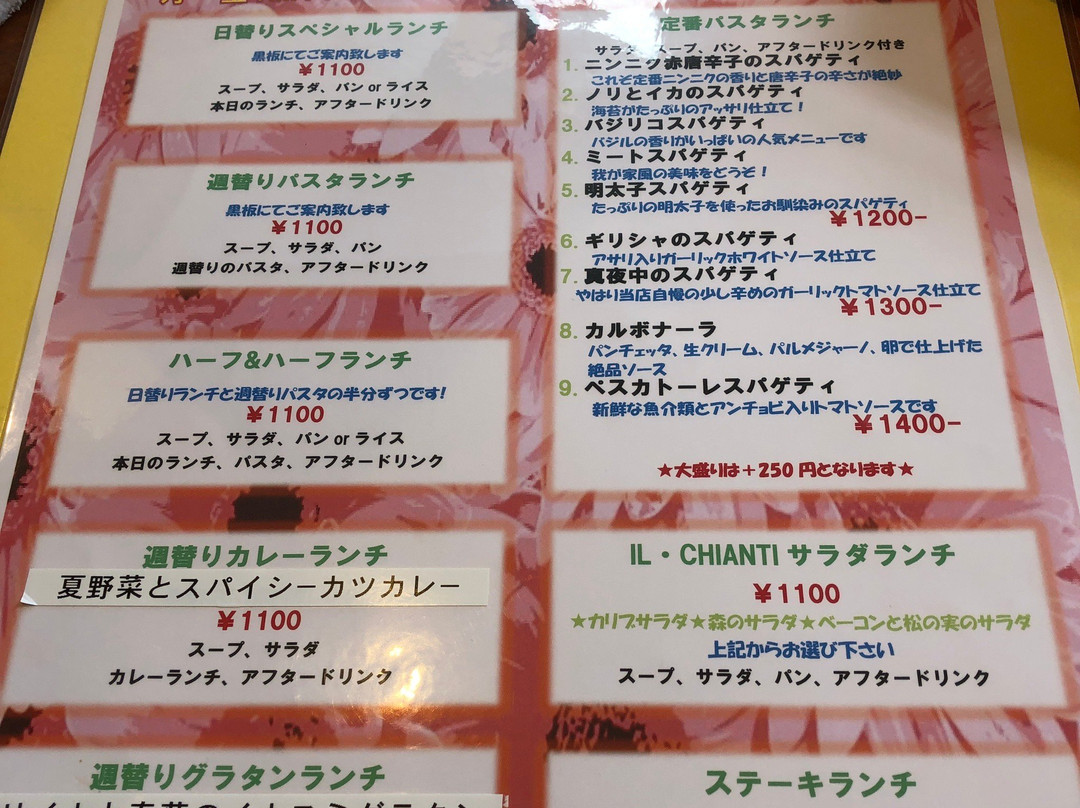 日替りスペシャルランチ
黒板にてご案内致します
¥1100
スープ、サラダ、パン or ライス
本日のランチ、アフタードリンク
週替りパスタランチ
黒板にてご案内致します
¥1100
スープ、サラダ、パン
週替りのパスタ、アフタードリンク
ハーフ&ハーフランチ
日替りランチと週替りパスタの半分ずつです!
¥1100
スープ、サラダ、パン or ライス
本日のランチ、パスタ、アフタードリンク
週替りカレーランチ
夏野菜とスパイシーカツカレー
¥1100
スープ、サラダ
カレーランチ、アフタードリンク
週替りグラタンランチ
定番パスタランチ
サラダ、スープ、パン、アフタードリンク付き
1. ニンニク赤唐辛子のスパゲティ
これぞ定番ニンニクの香りと唐辛子の辛さが絶妙
2. ノリとイカのスパゲティ
海苔がたっぷりのアッサリ仕立て!
3. バジリコスパゲティ
バジルの香りがいっぱいの人気メニューです
4. ミートスパゲティ
我が家風の美味をどうぞ!
5. 明太子スパゲティ
たっぷりの明太子を使ったお馴染みのスパゲティ
¥1200-
6. ギリシャのスパゲティ
アサリ入りガーリックホワイトソース仕立て
7. 真夜中のスパゲティ
やはり当店自慢の少し辛めのガーリックトマトソース仕立て
¥1300-
8. カルボナーラ
パンチェッタ、生クリーム、パルメジャーノ、卵で仕上げた
絶品ソース
9. ペスカトーレスパゲティ
新鮮な魚介類とアンチョビ入りトマトソースです
¥1400-
★大盛りは+250円となります★
IL・CHIANTI サラダランチ
¥1100
★カリブサラダ★森のサラダ★ベーコンと松の実のサラダ
上記からお選び下さい
スープ、サラダ、パン、アフタードリンク
ステーキランチ